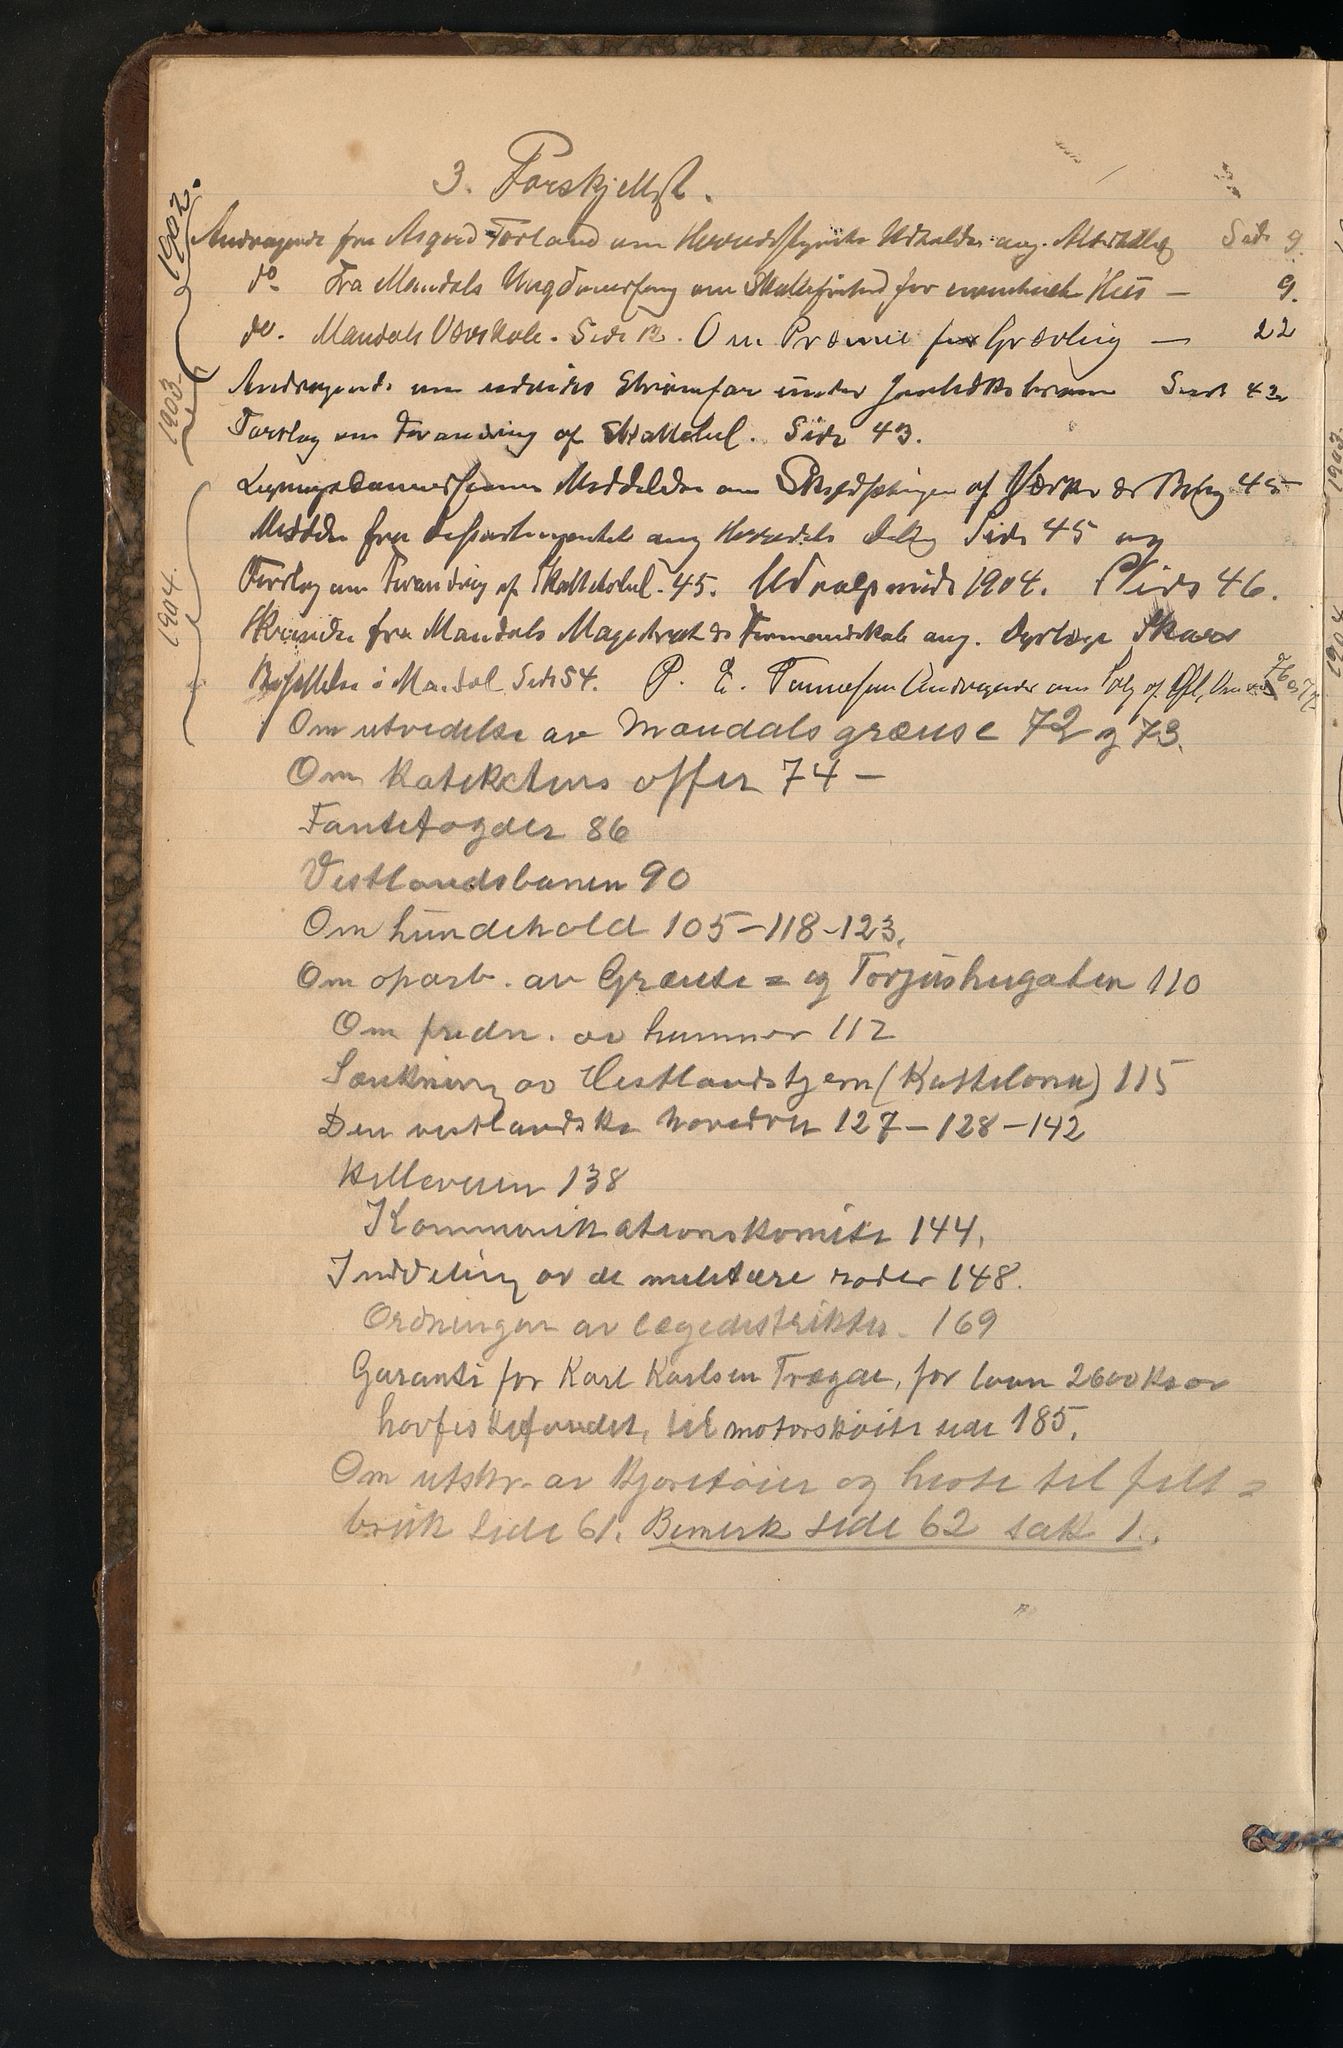 3. Forskjelligt.
1902.
Andragende fra Asgod Forland om Herredsstyrets Udtalelse ang. Side 9.
do. Fra Mandals Ungdomsslag om Skattefrihed for eventuelt Hus — 9.
do. Mandals Vævskole. Side 12. Om Præmie for Grævling — 22
1903
Andragende om under Side 42
Forslag om Forandring af Skattelul. Side 43.
1904.
Meddelelse om af Værker 45
Medd. fra Departementet ang Herredets Deling Side 45 og
Forslag om Forandring af 45. Udvalgsmøde 1904. Side 46.
Skrivelse fra Mandals Magistrat & Formandskab ang. Dyrlæge Skars
Bosættelse i Mandal Side 54. P. E. Tønnesen Andragende om Salg af Øl, 76 og 77.
Om utvidelse av Mandals grænse 72 og 73.
Om Katekekts offer 74 —
Fantefogder 86
Vestlandsbanen 90
Om hundehold 105 – 118 – 123.
Om oparb. av Grænse = og Torjusheigaten 110
Om fredn. av hummer 112
Sænkning av Vestlandstjern (Kastellone) 115
Den vestlandske hovedvei 127 – 128 – 142
Killeveien 138
Kommunikationskomite 144.
Inddeling av de militære roder 148.
Ordningen av lægedistrikter. 169
Garanti for Karl Karlsen Trægde, for laan 2600 kr av
havfiskefondet, til motorskøite side 185.
Om utskr. av kjøretøier og heste til felt =
bruk side 61. Bemerk side 62 sak 1.